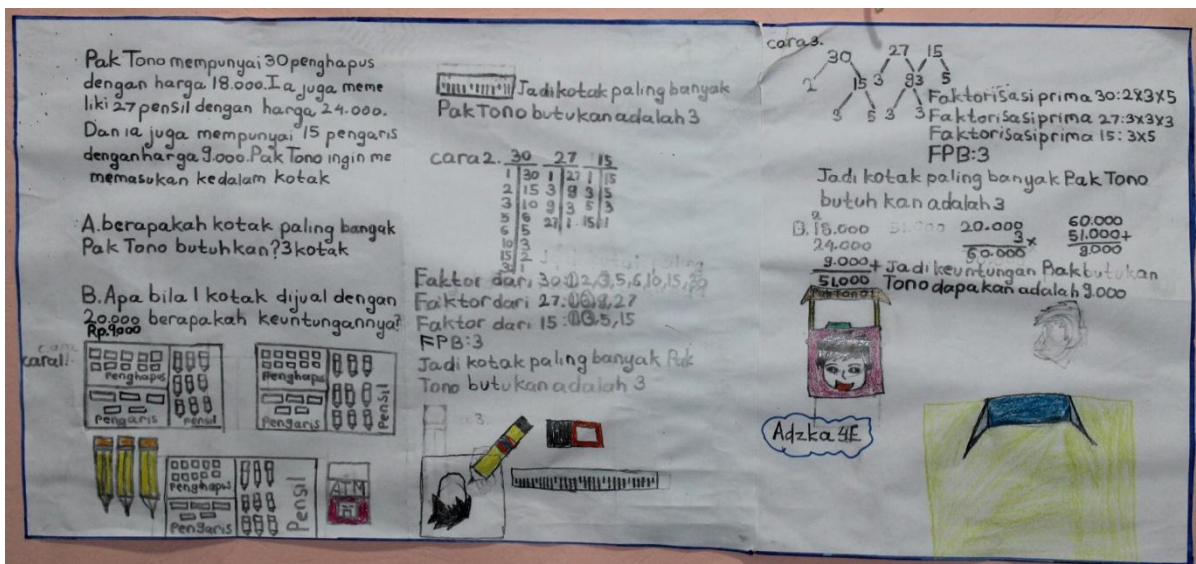 Pak Tono mempunyai 30 penghapus
dengan harga 18.000. Ia juga meme
liki 27 pensil dengan harga 24.000.
Dan ia juga mempunyai 15 pengaris
dengan harga 9.000. Pak Tono ingin me
memasukan kedalam kotak
A. berapakah kotak paling bangak
Pak Tono butuhkan? 3 kotak
B. Apa bila 1 kotak dijual dengan
20.000 berapakah keuntungannya?
Rp.9000
cara1.
Penghapus
Pengaris
Pensil
Penghapus
Pengaris
Pensil
Penghapus
Pengaris
Pensil
ATM
Jadi kotak paling banyak
Pak Tono butukan adalah 3
cara 2. 30 27 15
1 30 1 27 1 15
2 15 3 9 3 5
3 10 9 3 5 3
5 6 27 1 15 1
6 5
10 3
15 2
30 1
Faktor dari 30: 1, 2, 3, 5, 6, 10, 15, 30
Faktor dari 27: 1, 3, 9, 27
Faktor dari 15: 1, 3, 5, 15
FPB: 3
Jadi kotak paling banyak Pak
Tono butukan adalah 3
cara 3.
30 27 15
2 15 3 9 3 5
3 5 3 3
Faktorisasi prima 30: 2x3x5
Faktorisasi prima 27: 3x3x3
Faktorisasi prima 15: 3x5
FPB: 3
Jadi kotak paling banyak Pak Tono
butuh kan adalah 3
B. 18.000
24.000
9.000 +
51.000
20.000
3 x
60.000
60.000
51.000 +
9.000
Jadi keuntungan Pak butukan
Tono dapakan adalah 9.000
Pak Tono
Adzka 4E